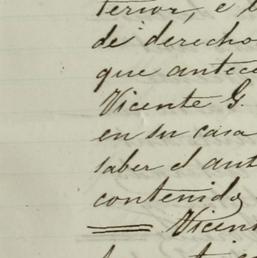 terior, e l
de derecho
que antece
Vicente G.
en su casa
saber el aut
contenido
Vicen